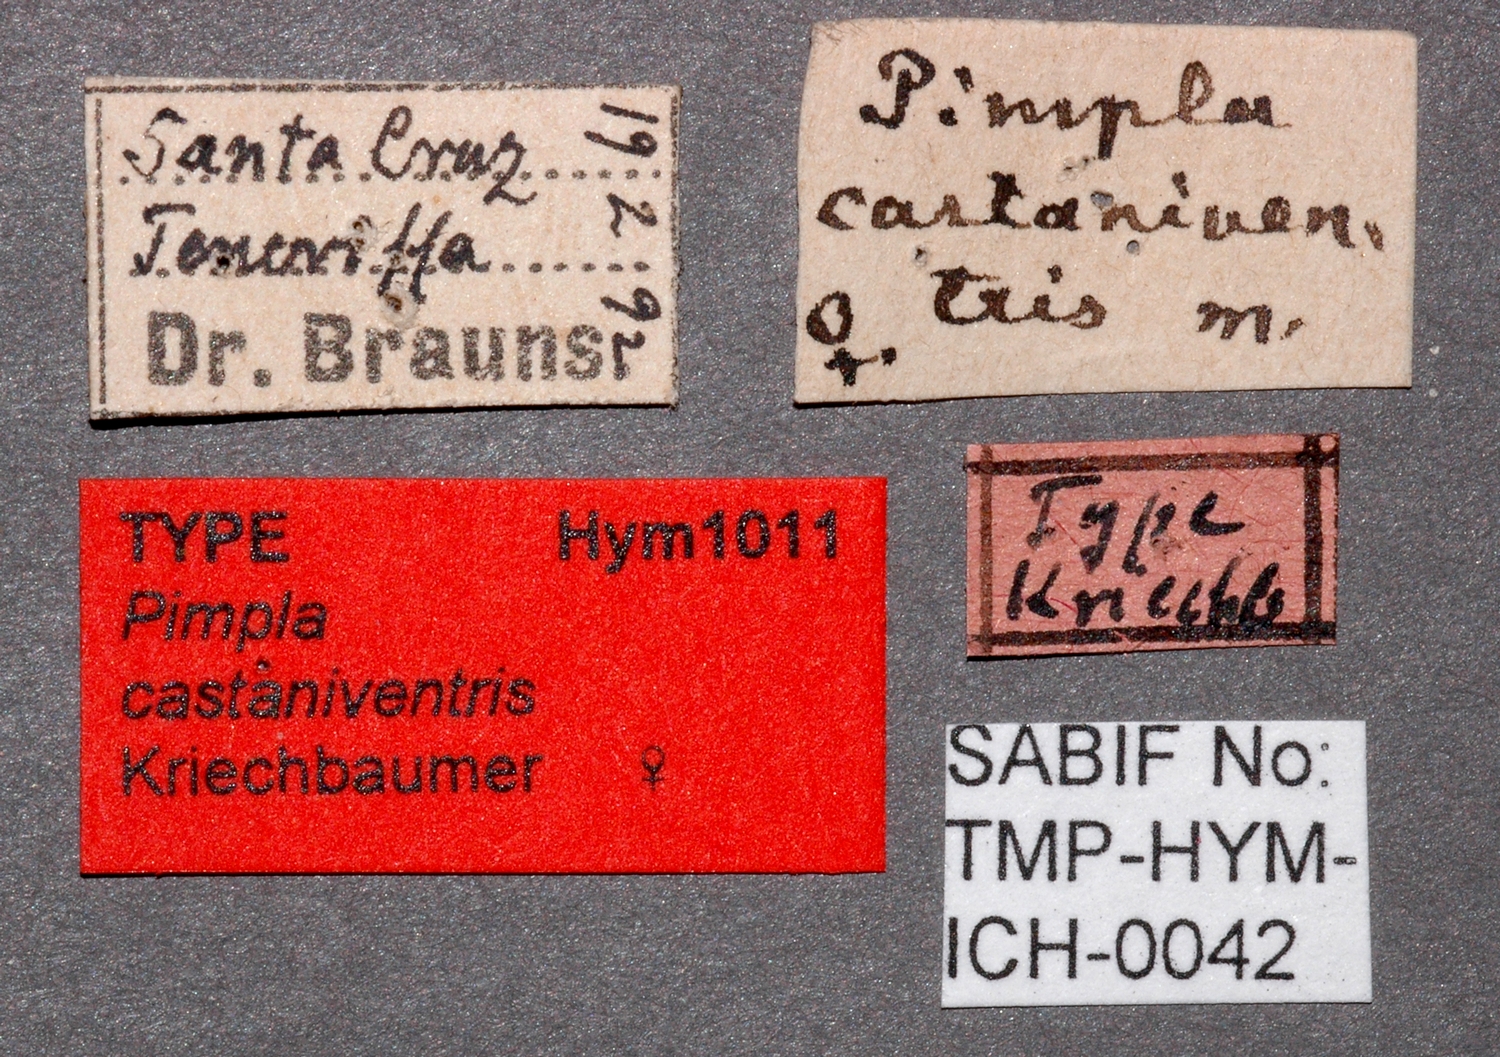 Santa Cruz
Teneriffa
Dr. Brauns
19 2 92
Pimpla
castaniven-
tris m.
♀.
TYPE Hym1011
Pimpla
castaniventris
Kriechbaumer ♀
Type
SABIF No:
TMP-HYM-
ICH-0042